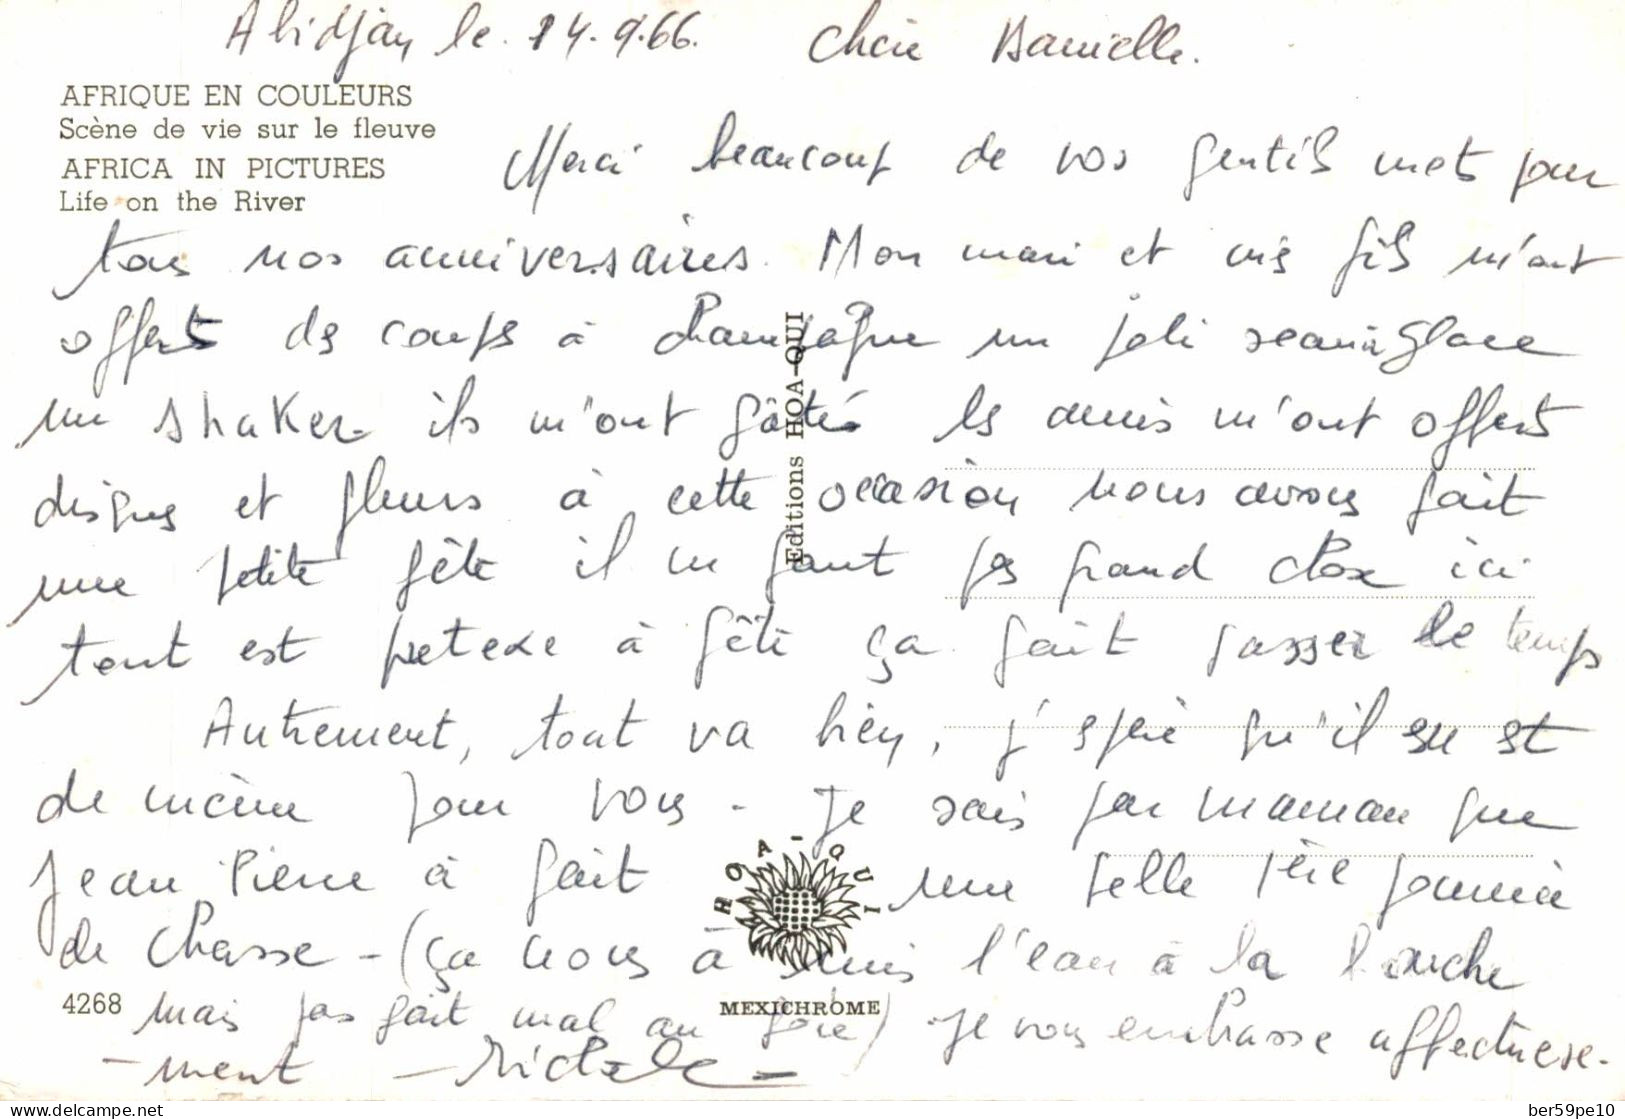 Abidjan le 14.9.66. Chère Danielle.
AFRIQUE EN COULEURS
Scène de vie sur le fleuve
AFRICA IN PICTURES
Life on the River
Merci beaucoup de vos gentils mots pour
tous nos anniversaires. Mon mari et mes fils m'ont
offerts des coups à champagne un joli seau à glace
un shaker ils m'ont gâtés les amis m'ont offerts
disques et fleurs à cette occasion nous avons fait
une petite fête il ne faut pas grand chose ici
tout est pretexe à fête ça fait passer le temps
Autrement, tout va bien, j'espère qu'il en est
de même pour vous - Je sais par maman que
Jean Pierre à fait une belle 1ère journée
de chasse - (ça nous à mis l'eau à la bouche
mais pas fait mal au foie) Je vous embrasse affectuese-
-ment - Michele -
Editions HOA-QUI
HOA-QUI
4268
MEXICHROME
delcampe.net
ber59pe10